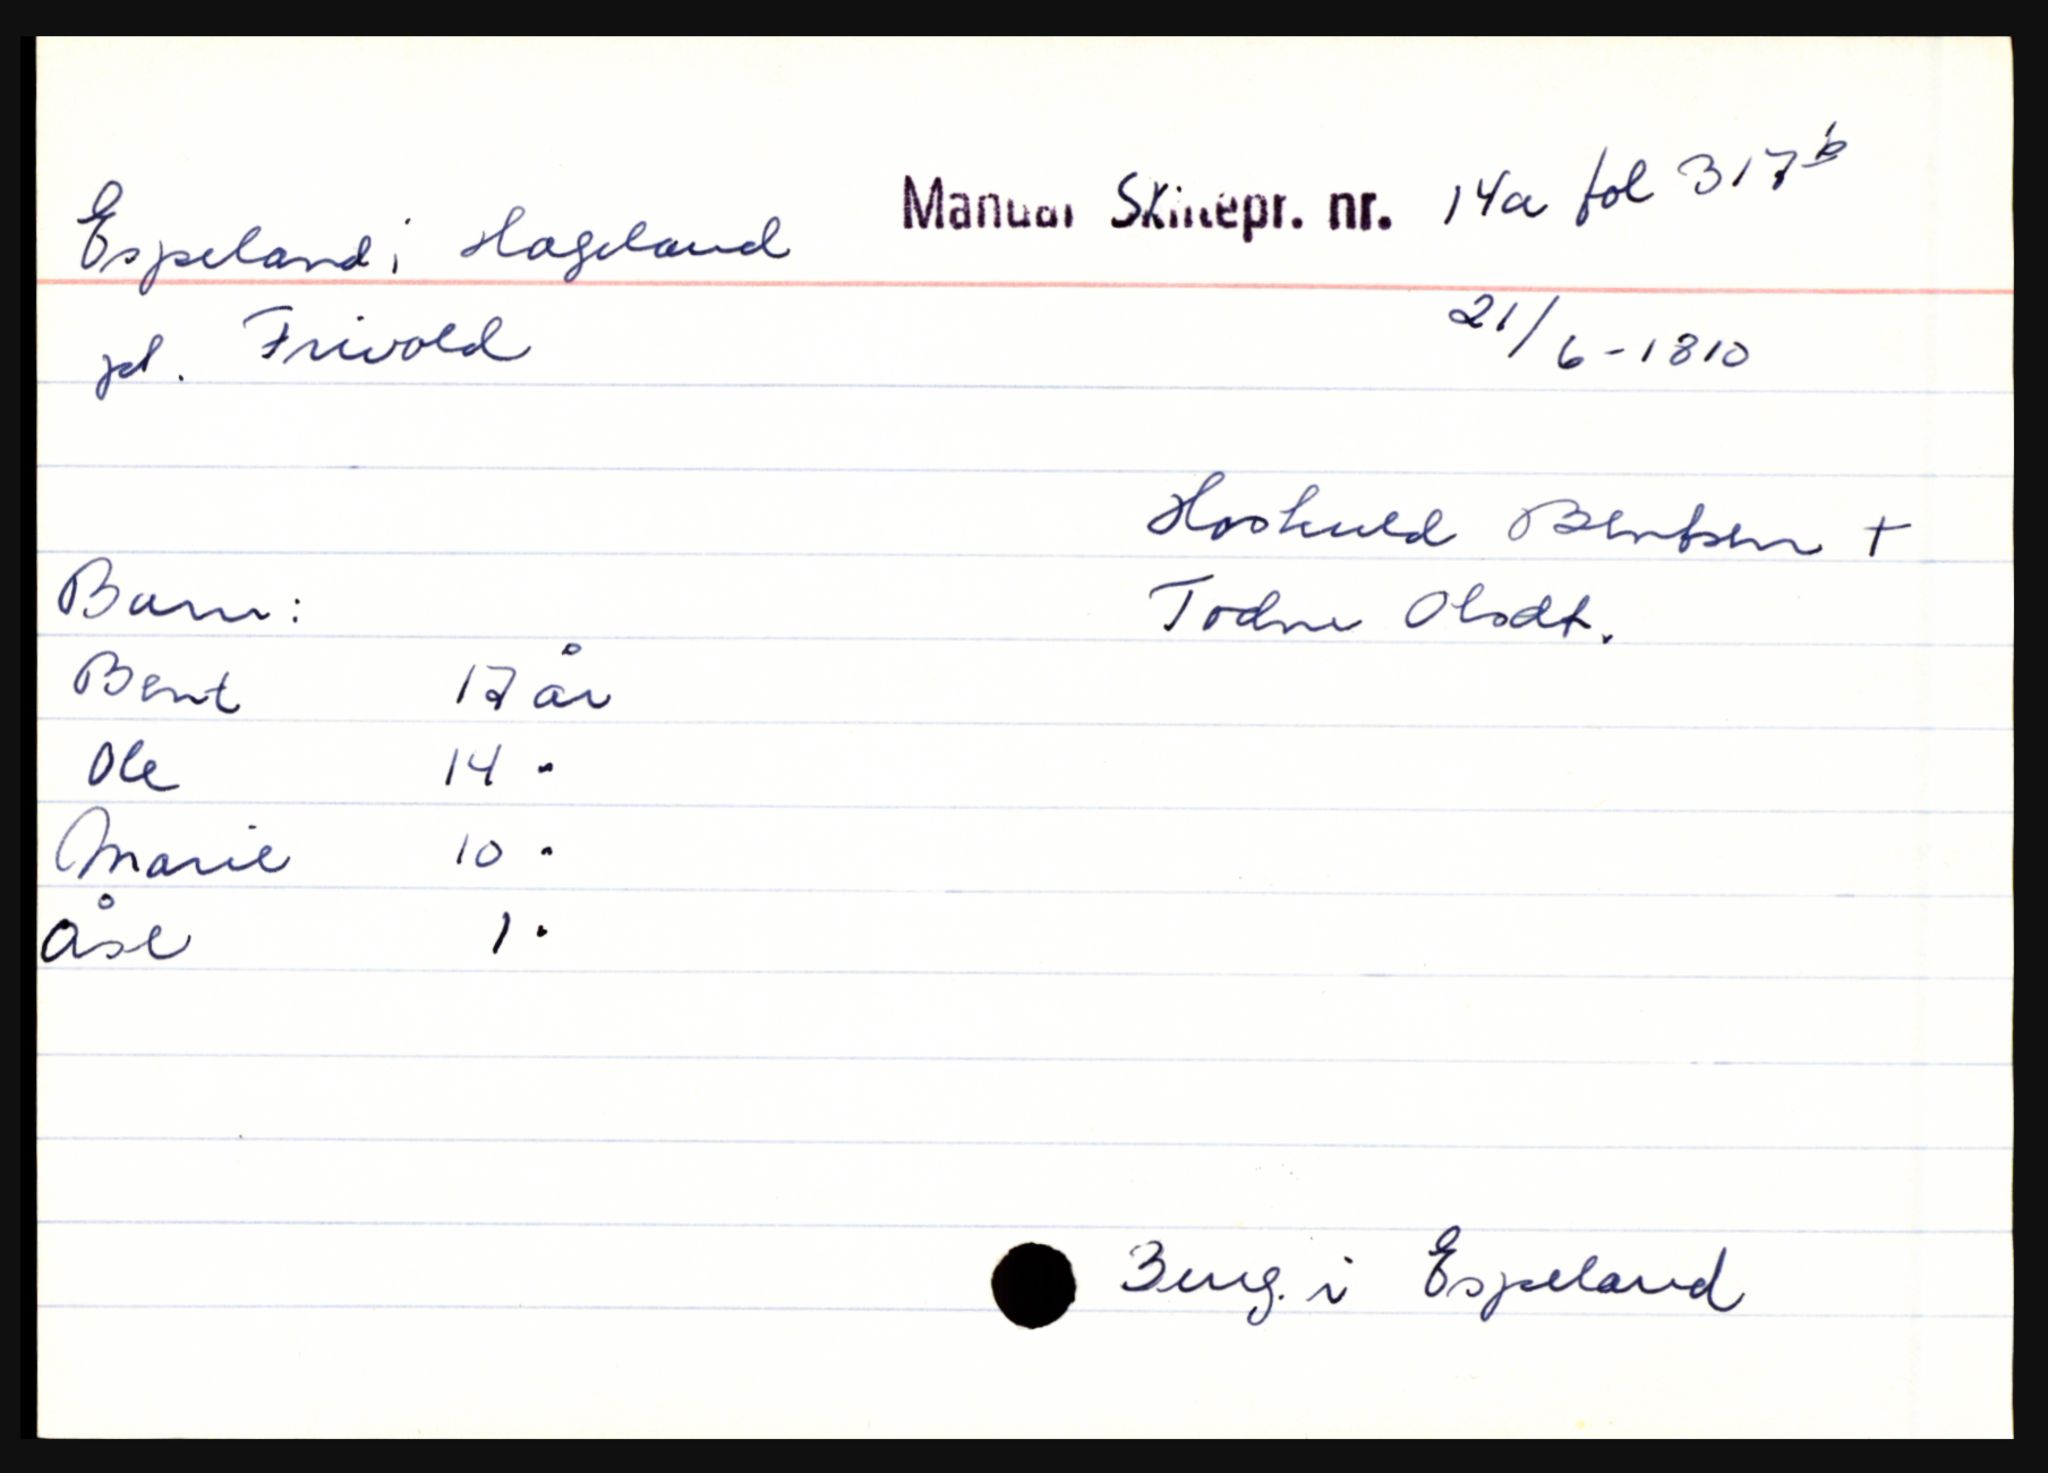 Espeland i Hageland
Manual Skiftepr. nr. 14a fol 317 b
pl. Frivold
21/6-1810
Hoskuld Bentsen +
Todne Olsdt.
Barn:
Bent 17 år
Ole 14 "
Marie 10 "
Åse 1 "
i Espeland